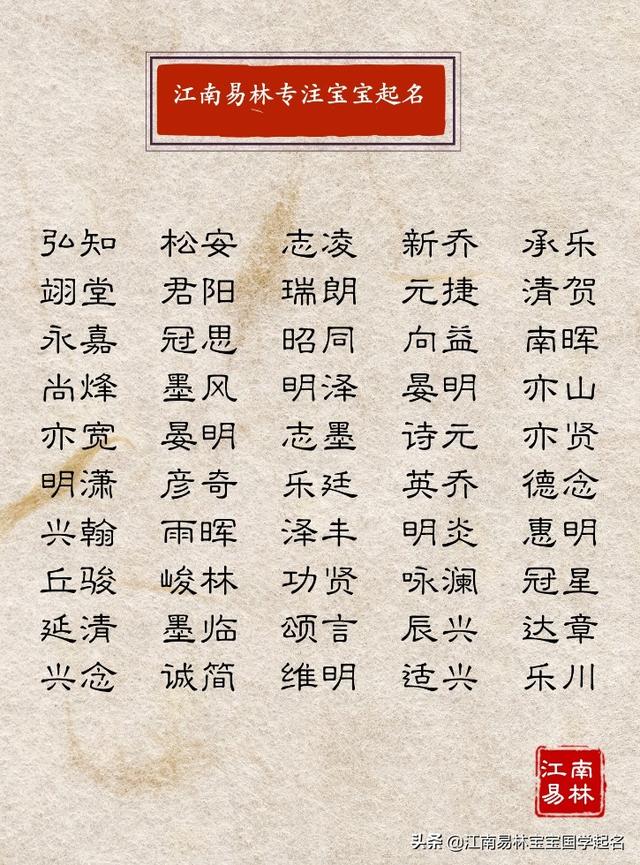 江南易林专注宝宝起名
弘知 松安 志凌 新乔 承乐
翊堂 君阳 瑞朗 元捷 清贺
永嘉 冠思 昭同 向益 南晖
尚烽 墨风 明泽 晏明 亦山
亦宽 晏明 志墨 诗元 亦贤
明潇 彦奇 乐廷 英乔 德念
兴翰 雨晖 泽丰 明炎 惠明
丘骏 峻林 功贤 咏澜 冠星
延清 墨临 颂言 辰兴 达章
兴念 诚简 维明 适兴 乐川
江南
易林
头条 @江南易林宝宝国学起名